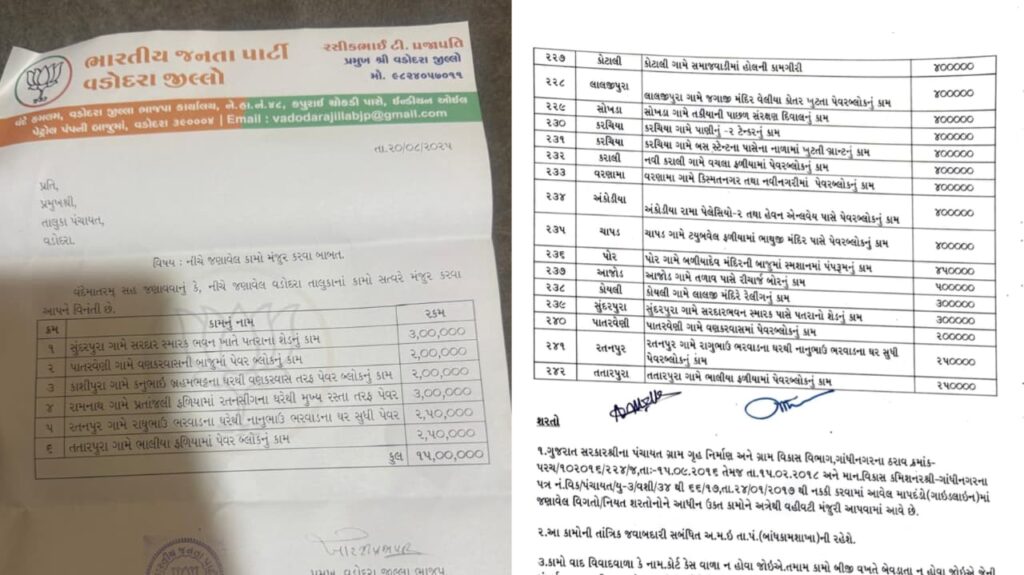 ભારતીય જનતા પાર્ટી
વડોદરા જીલ્લો
રસીકભાઈ ટી. પ્રજાપતિ
પ્રમુખ શ્રી વડોદરા જીલ્લો
મો. ૯૮૨૪૦૫૭૦૧૧
વંદે કમલમ, વડોદરા જીલ્લા ભાજપા કાર્યાલય, ને.હા.નં.૪૮, કપુરાઈ ચોકડી પાસે, ઈન્ડીયન ઓઈલ
પેટ્રોલ પંપની બાજુમાં, વડોદરા ૩૯૦૦૦૪ | Email : vadodarajillabjp@gmail.com
તા.૨૦/૦૮/૨૦૨૫
પ્રતિ,
પ્રમુખશ્રી,
તાલુકા પંચાયત,
વડોદરા.
વિષય : નીચે જણાવેલ કામો મંજુર કરવા બાબત.
વંદેમાતરમ્ સહ જણાવવાનું કે, નીચે જણાવેલ વડોદરા તાલુકાનાં કામો સત્વરે મંજુર કરવા
આપને વિનંતી છે.
ક્રમ કામનું નામ રકમ
૧ સુંદરપુરા ગામે સરદાર સ્મારક ભવન ખાતે પતરાનો શેડનું કામ ૩,૦૦,૦૦૦
૨ પાતરવેણી ગામે વણકરવાસની બાજુમાં પેવર બ્લોકનું કામ ૨,૦૦,૦૦૦
૩ કાશીપુરા ગામે કનુભાઇ બ્રહમભટ્ટના ઘરથી વણકરવાસ તરફ પેવર બ્લોકનું કામ ૨,૦૦,૦૦૦
૪ રામનાથ ગામે પ્રતાંજલી ફળિયામાં રતનસીંગના ઘરેથી મુખ્ય રસ્તા તરફ પેવર ૩,૦૦,૦૦૦
૫ રતનપુર ગામે રાધુભાઉ ભરવાડના ઘરેથી નાનુભાઉ ભરવાડના ઘર સુધી પેવર ૨,૫૦,૦૦૦
૬ તતારપુરા ગામે ભાલીયા ફળિયામાં પેવર બ્લોકનું કામ ૨,૫૦,૦૦૦
કુલ ૧૫,૦૦,૦૦૦
પ્રમુખ વડોદરા જીલ્લા ભાજપ
૨૨૭ કોટાલી કોટાલી ગામે સમાજવાડીમાં હોલની કામગીરી ૪૦૦૦૦૦
૨૨૮ લાલજીપુરા લાલજીપુરા ગામે જગાજી મંદિર વેલીયા કોતર ખુટતા પેવરબ્લોકનું કામ ૪૦૦૦૦૦
૨૨૯ સોખડા સોખડા ગામે તડીયાની પાછળ સંરક્ષણ દિવાલનું કામ ૪૦૦૦૦૦
૨૩૦ કરચિયા કરચિયા ગામે પાણીનું -૨ ટેન્કરનું કામ ૪૦૦૦૦૦
૨૩૧ કરચિયા કરચિયા ગામે બસ સ્ટેન્ટના પાસેના નાળામાં ખુટતી ગ્રાન્ટનું કામ ૪૦૦૦૦૦
૨૩૨ કરાલી નવી કરાલી ગામે વચલા ફળીયામાં પેવરબ્લોકનું કામ ૪૦૦૦૦૦
૨૩૩ વરણામા વરણામા ગામે કિસ્મતનગર તથા નવીનગરીમાં પેવરબ્લોકનું કામ ૪૦૦૦૦૦
૨૩૪ અંકોડીયા અંકોડીયા રામા પેલેસિયો-૨ તથા હેવન એન્લવેય પાસે પેવરબ્લોકનું કામ ૪૦૦૦૦૦
૨૩૫ ચાપડ ચાપડ ગામે ટયુબવેલ ફળીયામાં ભાથુજી મંદિર પાસે પેવરબ્લોકનું કામ ૪૦૦૦૦૦
૨૩૬ પોર પોર ગામે બળીયાદેવ મંદિરની બાજુમાં સ્મશાનમાં પંપરૂમનું કામ ૪૫૦૦૦૦
૨૩૭ આજોડ આજોડ ગામે તળાવ પાસે રીચાર્જ બોરનું કામ ૫૦૦૦૦૦
૨૩૮ કોયલી કોયલી ગામે લાલજી મંદિરે રેલીંગનું કામ ૩૦૦૦૦૦
૨૩૯ સુંદરપુરા સુંદરપુરા ગામે સરદારભવન સ્મારક પાસે પતરાનો શેડનું કામ ૩૦૦૦૦૦
૨૪૦ પાતરવેણી પાતરવેણી ગામે વણકરવાસમાં પેવરબ્લોકનું કામ ૨૦૦૦૦૦
૨૪૧ રતનપુર રતનપુર ગામે રાગુભાઉ ભરવાડના ઘરથી નાનુભાઉ ભરવાડના ઘર સુધી
પેવરબ્લોકનું કામ ૨૫૦૦૦૦
૨૪૨ તતારપુરા તતારપુરા ગામે ભાલીયા ફળીયામાં પેવરબ્લોકનું કામ ૨૫૦૦૦૦
શરતો
૧.ગુજરાત સરકારશ્રીના પંચાયત ગ્રામ ગૃહ નિર્માણ અને ગ્રામ વિકાસ વિભાગ,ગાંધીનગરના ઠરાવ ક્રમાંક-
પરચ/૧૦૨૦૧૬/૨૨૪/જ,તાઃ-૧૫.૦૯.૨૦૧૬ તેમજ તા.૧૫.૦૨.૨૦૧૮ અને માન.વિકાસ કમિશનરશ્રી-ગાંધીનગરના
પત્ર નં.વિક/પંચાયત/યુ-૩/વશી/૩૪ થી ૬૬/૧૭,તા.૨૪/૦૧/૨૦૧૭ થી નકકી કરવામાં આવેલ માપદંડો(ગાઇડલાઇન)માં
જણાવેલ વિગતો/નિયત શરતોનોને આધીન ઉકત કામોને અત્રેથી વહીવટી મંજુરી આપવામાં આવે છે.
૨.આ કામોની તાંત્રિક જવાબદારી સબંધિત અ.મ.ઇ તા.પં.(બાંધકામશાખા)ની રહેશે.
૩.કામો વાદ વિવાદવાળા કે નામ.કોર્ટ કેસ વાળા ન હોવા જોઇએ.તમામ કામો બીજી વખતે બેવડાતા ન હોવા જોઇએ જેની